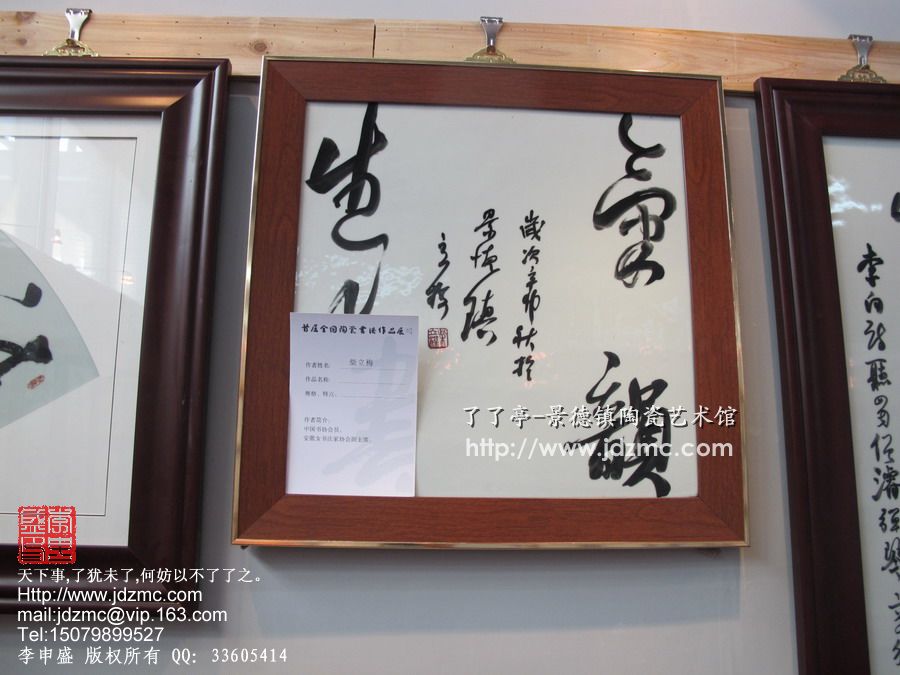 氣
韻
歲次辛卯秋於
景德鎮
立梅
造
首届全国陶瓷书法作品展
作者姓名: 柴立梅
作品名称:
规格、释文:
作者简介:
中国书协会员,
安徽女书法家协会副主席。
李白诗聽蜀僧濬彈琴
了了亭-景德镇陶瓷艺术馆
http://www.jdzmc.com
天下事,了犹未了,何妨以不了了之。
Http://www.jdzmc.com
mail:jdzmc@vip.163.com
Tel:15079899527
李申盛 版权所有 QQ: 33605414